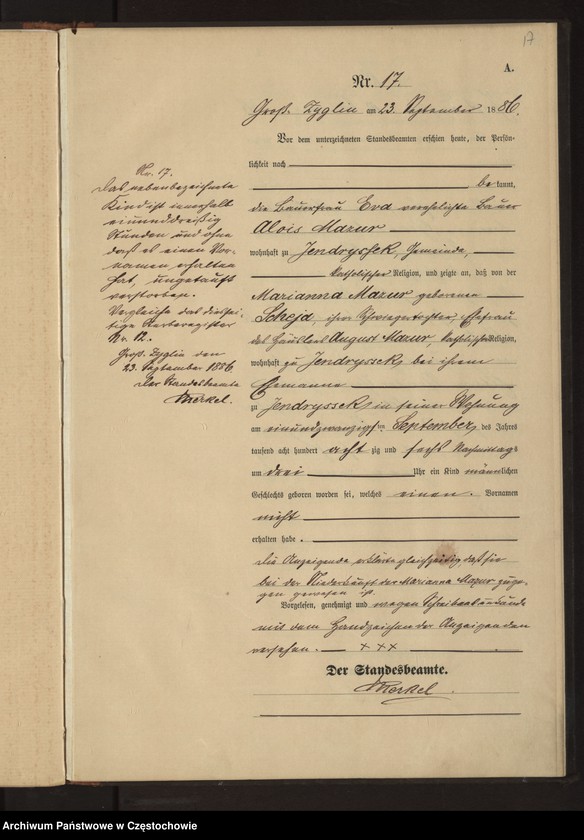 17
A.
Nr. 17.
Groß Zyglin am 23. September 1886.
Vor dem unterzeichneten Standesbeamten erschien heute, der Persön-
lichkeit nach
bekannt,
die Bäuerfrau Eva verehelichte Bauer
Alois Mazur
wohnhaft zu Jendryssek, Gemeinde,
katholischer Religion, und zeigte an, daß von der
Marianna Mazur geborenen
Scheja, ihrer Schwiegertochter, Ehefrau
des Häuslers August Mazur, katholischer Religion,
wohnhaft zu Jendryssek, bei ihrem
Ehemanne
zu Jendryssek, in seiner Wohnung
am einundzwanzigsten September, des Jahres
tausend acht hundert achtzig und sechs Nachmittags
um drei Uhr ein Kind männlichen
Geschlechts geboren worden sei, welches einen Vornamen
nicht
erhalten habe.
Die Anzeigende erklärte gleichzeitig, daß sie
bei der Niederkunft der Marianna Mazur zuge-
gen gewesen ist.
Vorgelesen, genehmigt und wegen Schreibensunkunde
mit dem Handzeichen der Anzeigenden
versehen. + + +
Der Standesbeamte.
Merkel.
Nr. 17.
Das nebenbezeichnete
Kind ist innerhalb
einunddreißig
Stunden und ohne
daß es einen Vor-
namen erhalten
hat, ungetauft
verstorben.
Vergleiche das diessei-
tige Sterberegister
Nr. 12.
Groß Zyglin den
23. September 1886
Der Standesbeamte
Merkel.
Archiwum Państwowe w Częstochowie